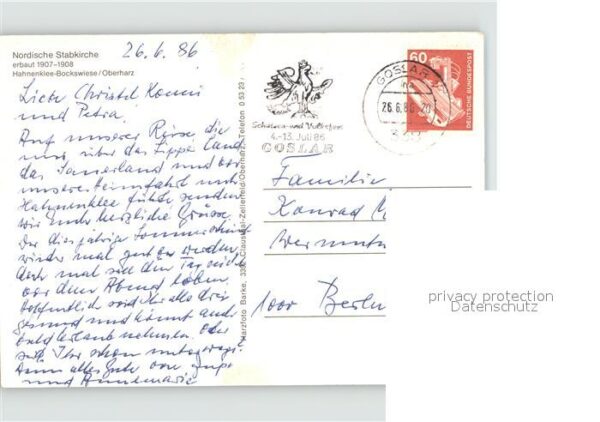 Nordische Stabkirche
erbaut 1907-1908
Hahnenklee-Bockswiese/Oberharz
26.6.86
Liebe Christel Konni
und Petra.
Auf unserer Reise die
uns über das Lippe Land
das Sauerland und vor
unserer Heimfahrt nach
Hahnenklee führte senden
wir Euch herzliche Grüsse.
Der diesjährige Sommer scheint
wieder mal gut zu werden
doch mal soll den Tag nicht
vor dem Abend loben
hoffentlich seid ihr alle drei
gesund und könnt auch
bald Urlaub nehmen. oder
seid Ihr schon unterwegs?
Dann alles Gute von
und Annemarie
Harzfoto Barke, 3392 Clausthal-Zellerfeld/Oberharz, Telefon 0 53 23 /
Schützen- und Volksfest
4.-13. Juli 86
GOSLAR
GOSLAR
26.6.86-20
60
DEUTSCHE BUNDESPOST
Familie
Konrad
1000 Berlin
privacy protection
Datenschutz